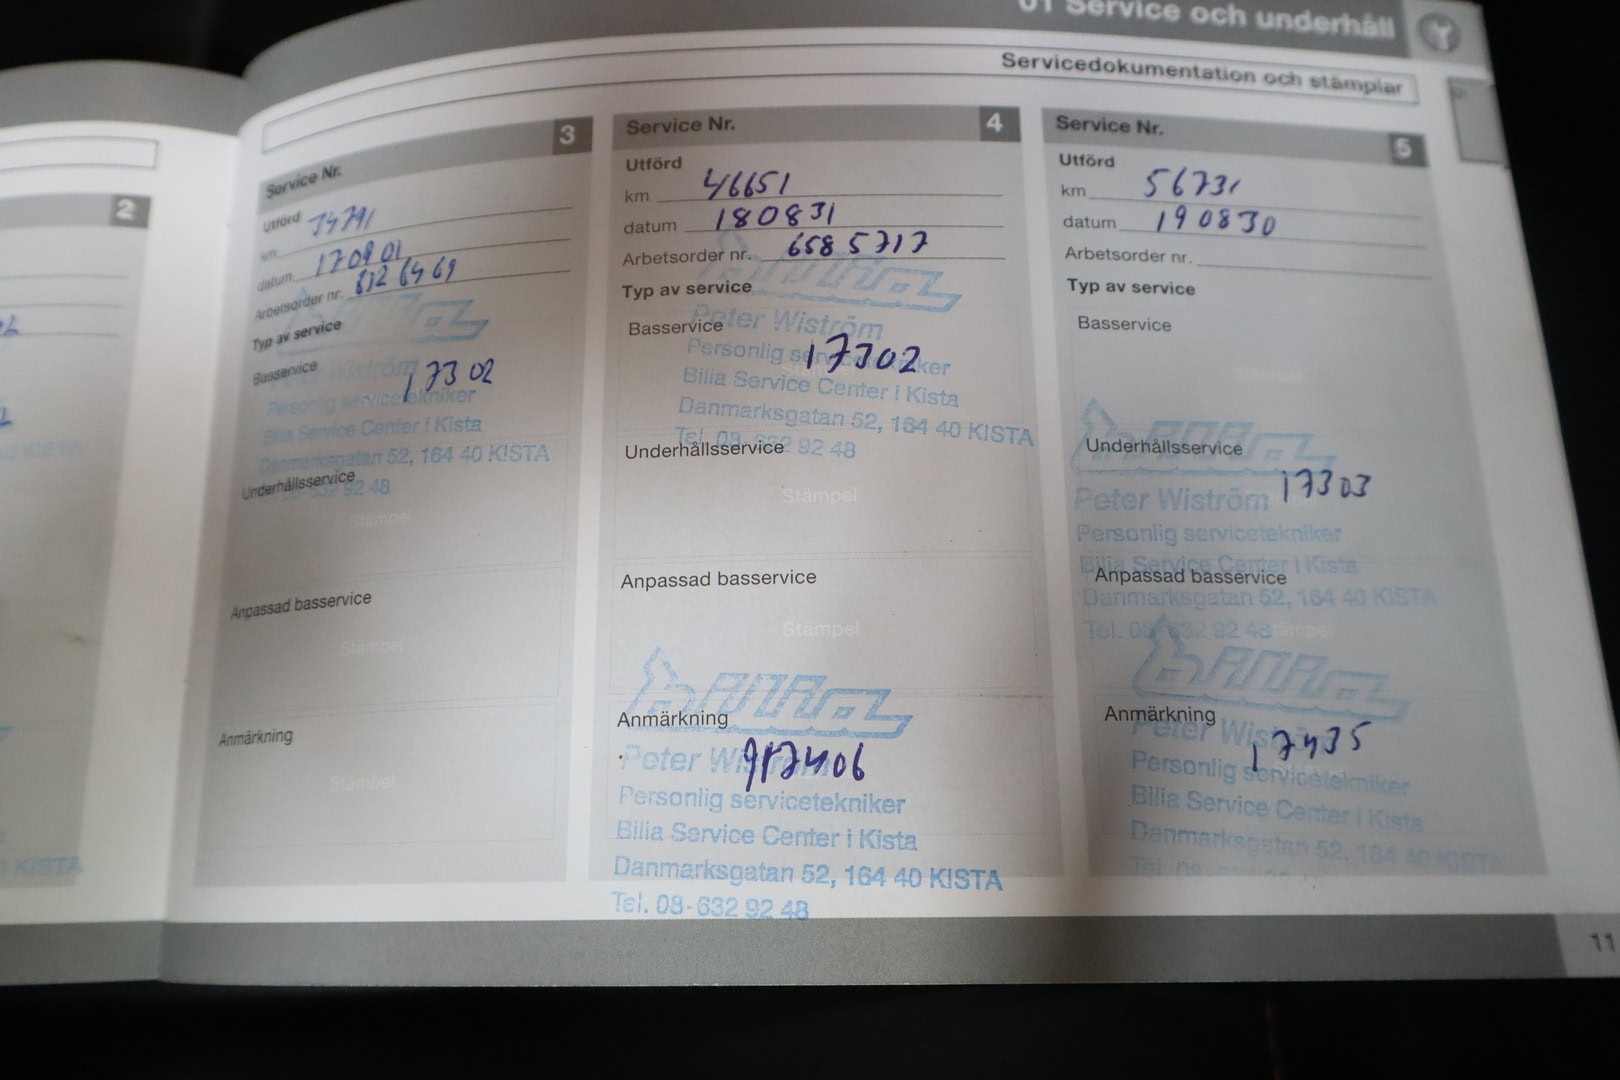 01 Service och underhåll
Servicedokumentation och stämplar
2
KISTA
KISTA
Service Nr. 3
Utförd
km 34791
datum 170901
Arbetsorder nr. 8126469
Typ av service
Basservice
Peter Wiström
17302
Personlig servicetekniker
Bilia Service Center i Kista
Danmarksgatan 52, 164 40 KISTA
Underhållsservice
632 92 48
Stämpel
Anpassad basservice
Stämpel
Anmärkning
Stämpel
Service Nr. 4
Utförd
km 46651
datum 180831
Arbetsorder nr. 6585717
bilia
Typ av service
Peter Wiström
Basservice
Personlig servicetekniker
17302
Bilia Service Center i Kista
Danmarksgatan 52, 164 40 KISTA
Tel. 08-632 92 48
Underhållsservice
Stämpel
Anpassad basservice
Stämpel
bilia
Anmärkning
Peter
917406
Personlig servicetekniker
Bilia Service Center i Kista
Danmarksgatan 52, 164 40 KISTA
Tel. 08-632 92 48
Service Nr. 5
Utförd
km 56731
datum 190830
Arbetsorder nr.
Typ av service
Basservice
Stämpel
bilia
Underhållsservice
Peter Wiström 17303
Personlig servicetekniker
Bilia Service Center i Kista
Anpassad basservice
Danmarksgatan 52, 164 40 KISTA
Tel. 08-632 92 48
Stämpel
bilia
Anmärkning
Peter Wiström
17435
Personlig servicetekniker
Bilia Service Center i Kista
Danmarksgatan 52, 164 40 KISTA
11